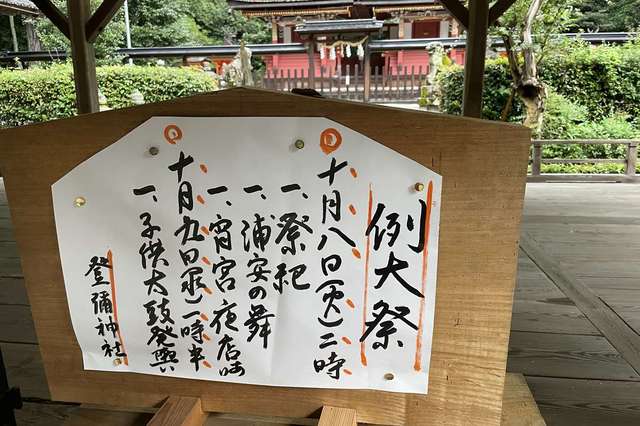 例大祭
十月八日(火)二時
一、祭祀
一、浦安の舞
一、宵宮 夜店
十月九日(水)一時半
一、子供太鼓發輿
登彌神社